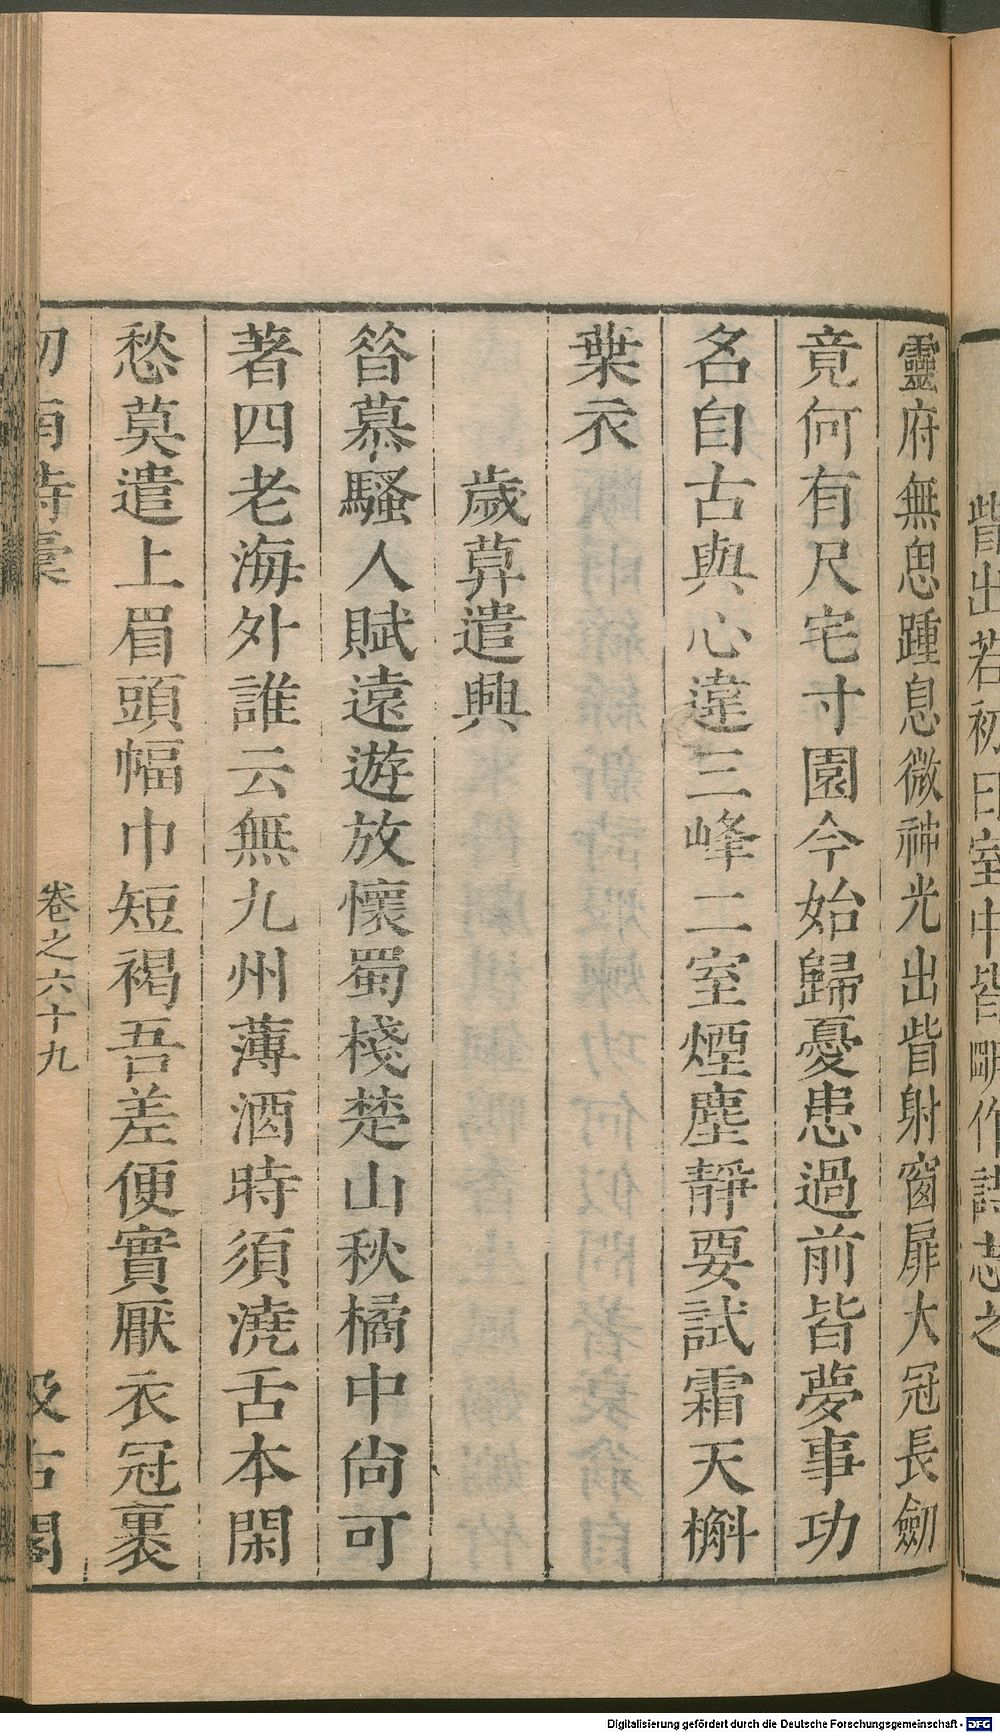 皆出若初日室中皆明作詩志之
靈府無思踵息微神光出眥射窗扉大冠長劒
竟何有尺宅寸園今始歸憂患過前皆夢事功
名自古與心違三峰二室煙塵靜要試霜天槲
葉衣
歲暮遣興
昔慕騷人賦遠遊放懷蜀棧楚山秋橘中尙可
著四老海外誰云無九州薄酒時須澆舌本閑
愁莫遣上眉頭幅巾短褐吾差便實厭衣冠裹
卷之六十九
汲古閣
Digitalisierung gefördert durch die Deutsche Forschungsgemeinschaft - DFG